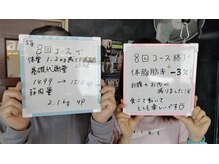 8回コースで
体重 1.2kg減
基礎代謝量
1499 → 1513
筋肉量
2.1kg up
8回コース終了!
体脂肪率 -3%
お腹のお肉が
減りました!
食べて動いて
とても楽しいです